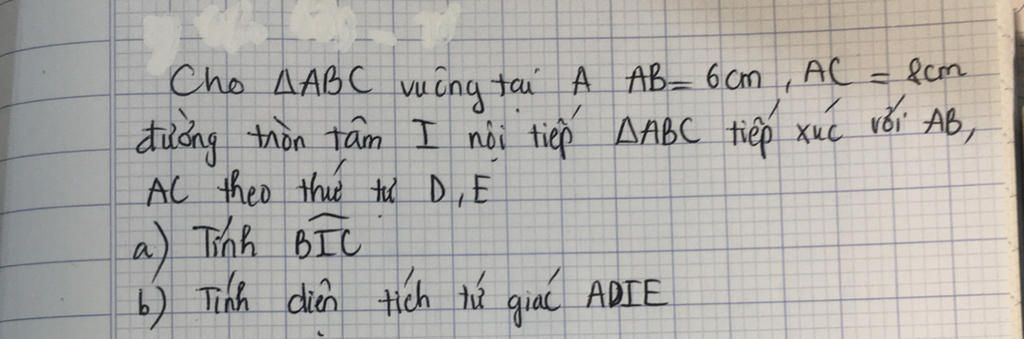 Cho ΔABC vuông tại A AB = 6cm, AC = 8cm
đường tròn tâm I nội tiếp ΔABC tiếp xúc với AB,
AC theo thứ tự D, E
a) Tính B̂IC
b) Tính diện tích tứ giác ADIE